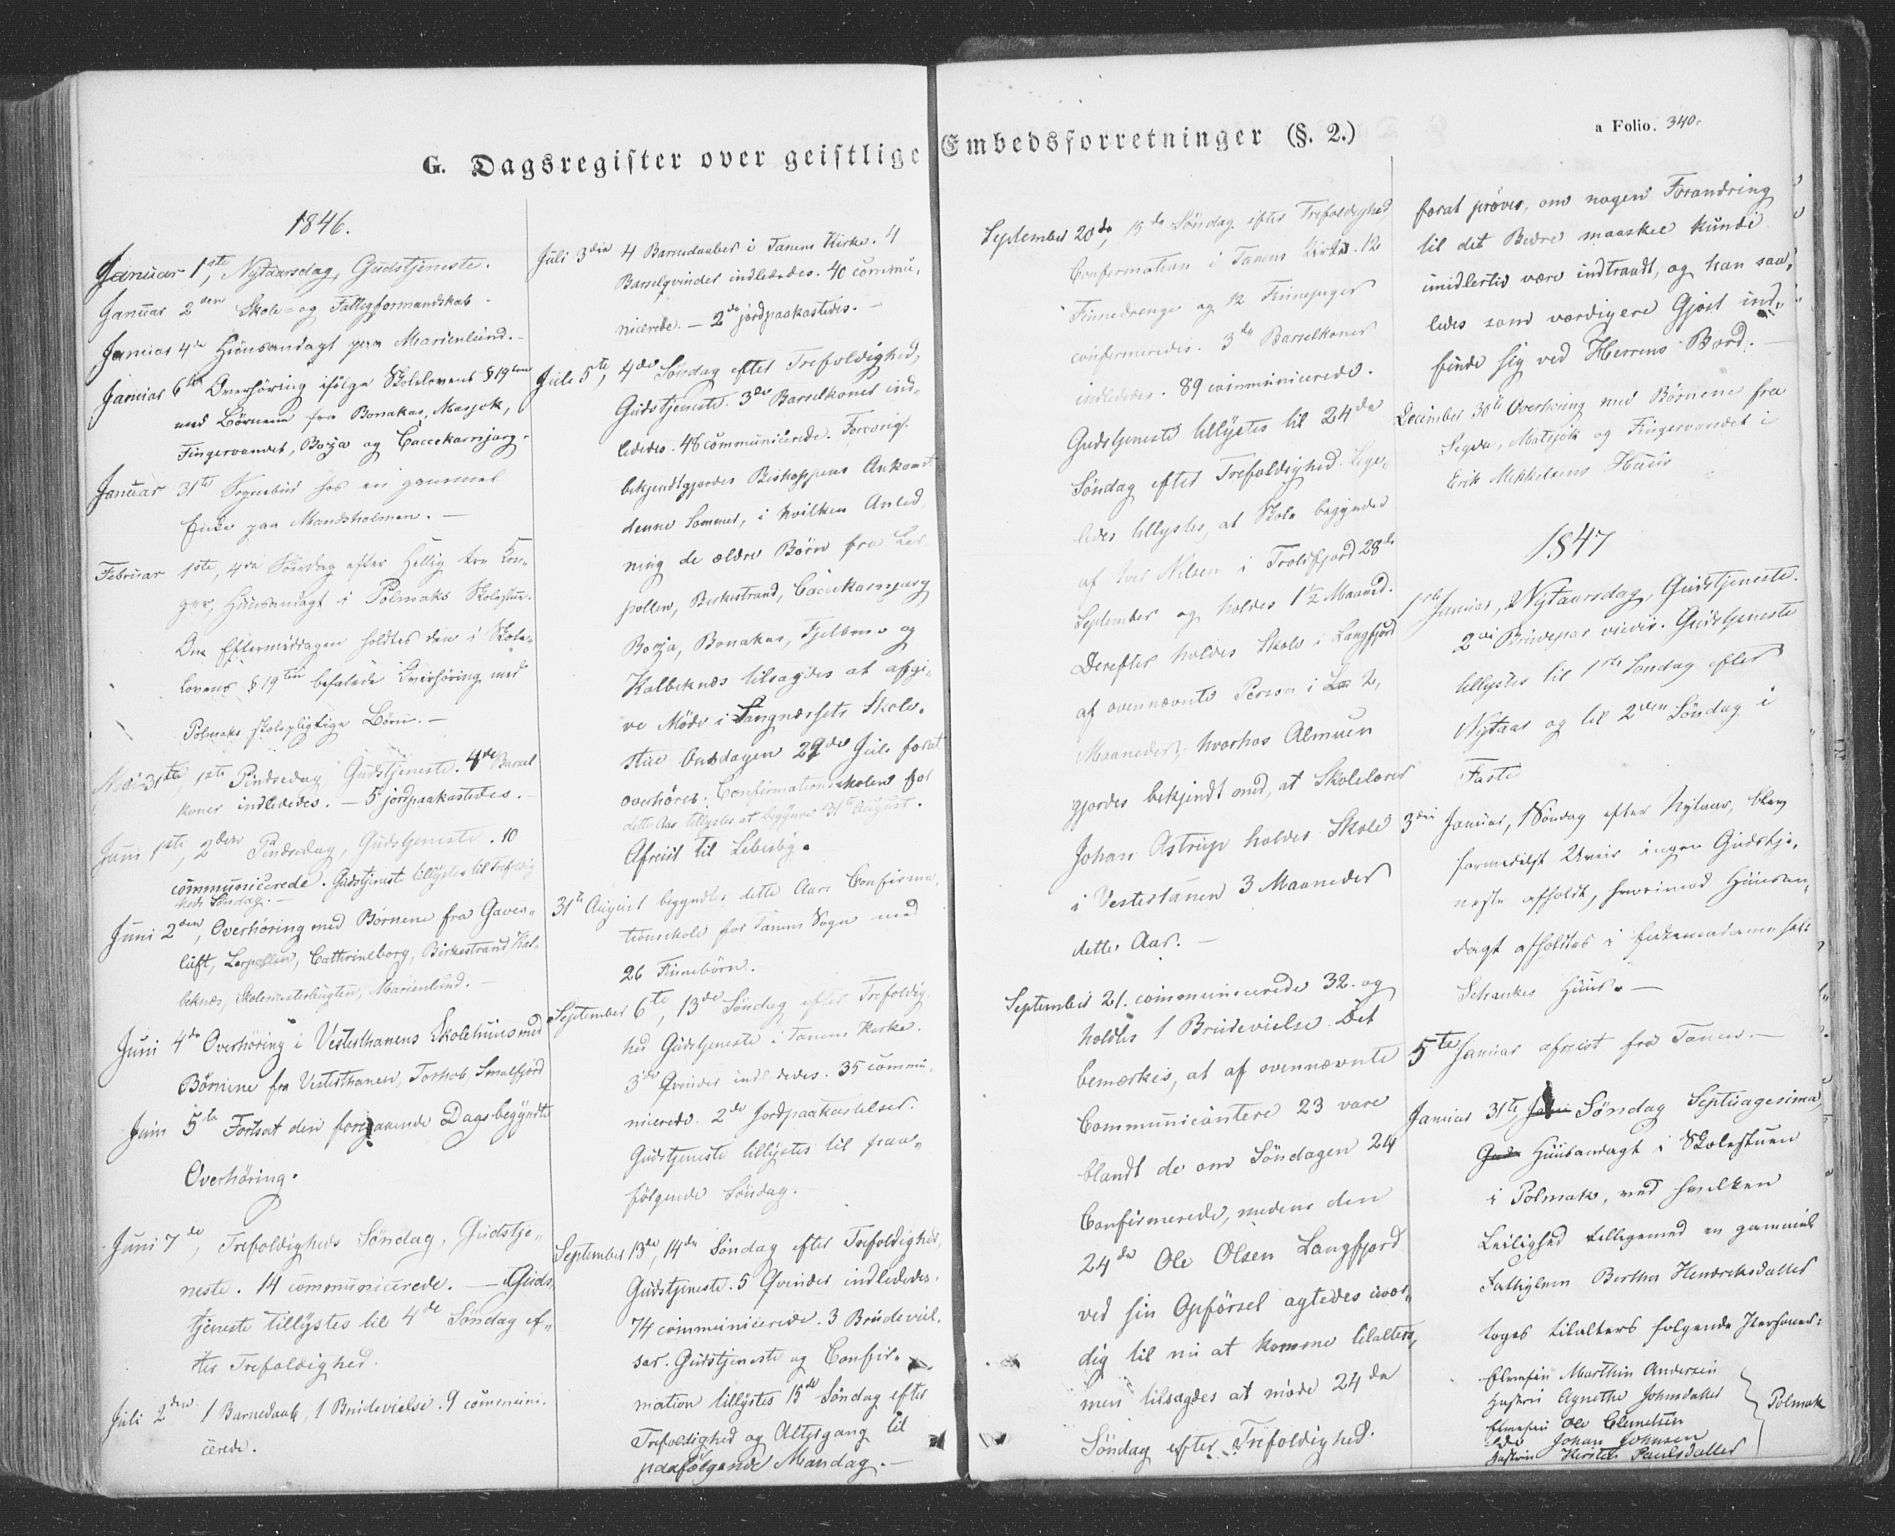 G. Dagsregister over geistlige Embedsforretninger (§. 2.)
a Folio. 340.
1846.
Januar 1ste, Nytaarsdag, Gudstjeneste.
Januar 2den Skole- og Fattigformandskab.
Januar 4de Huusandagt paa Marienlund.
Januar 6te Overhøring ifølge Skolelovens § 19ten
med Børnene fra Bonakas, Masjok,
Fingervandet, Borja og Caccekarnjarg.
Januar 31te Sognebud hos en gammel
Enke paa Mandsholmen. —
Februar 1ste, 4de Søndag efter Hellig tre Kon-
ger, Huusandagt i Polmaks Skolestue.
Om Eftermiddagen holdtes den i Skole-
lovens § 19ten befalede Overhøring med
Polmaks skolepligtige Børn. —
Mai 31te, 1ste Pindsedag, Gudstjeneste. 4de Barsel
koner indlededes. — 5 jordpaakastedes. —
Juni 1ste, 2den Pindsedag, Gudstjeneste. 10
communicerede. Gudstjeneste tillystes til Trefoldig
heds Søndag. —
Juni 2den, Overhøring med Børnene fra Gaves-
luft, Lerpollen, Cathrineborg, Birkestrand, Kal-
beknæs, Skolemesterbugten, Marienlund. —
Juni 4de Overhøring i Vestertanens Skolehuus med
Børnene fra Vestertanen, Torhob, Smalfjord
Juni 5te Fortsat den foregaaende Dag begyndte
Overhøring.
Juni 7de, Trefoldigheds Søndag, Gudstje-
neste. 14 communicerede. — Guds
tjeneste tillystes til 4de Søndag ef-
ter Trefoldighed.
Juli 2den 1 Barnedaab, 1 Brudevielse. 9 communi-
cerede.
Juli 3die 4 Barnedaaber i Tanens Kirke. 4
Barselqvinder indlededes. 40 commu-
nicerede. — 2de jordpaakastedes. —
Juli 5te, 4de Søndag efter Trefoldighed,
Gudstjeneste. 3de Barselkoner ind-
lededes. 46 communicerede. Forøvrigt
bekjendtgjordes Biskoppens Ankomst
denne Sommer, i hvilken Anled-
ning de ældre Børn fra Ler-
pollen, Birkestrand, Caccekarnjarg
Borja, Bonakas, Fjelbma og
Kalbeknæs tilsagdes at afgi-
ve Møde i Langnæssets Skole-
stue Onsdagen 29de Juli forat
overhøres. Confirmationsskolen for
dette Aar tillystes at begynde 31te August.
Afreist til Lebesby.
31te August begyndtes dette Aars Confirma-
tionsskole for Tanens Sogn med
26 Finnebørn.
September 6te, 13de Søndag efter Trefoldig-
hed Gudstjeneste i Tanens Kirke.
3de Qvinder indlededes. 35 commu-
nicerede. 2de Jordpaakastelser.
Gudstjeneste tillystes til paa-
følgende Søndag.
September 13de, 14de Søndag efter Trefoldighed,
Gudstjeneste. 5 Qvinder indlededes.
74 communicerede. 3 Brudeviel-
ser. Gudstjeneste og Confir-
mation tillystes 15de Søndag efter
Trefoldighed og Altergang til
paafølgende Mandag. —
September 20de, 15de Søndag efter Trefoldighed
Confirmation i Tanens Kirke. 12
Finnedrenge og 12 Finnepiger
confirmeredes. 3de Barselkoner
indlededes. 89 communicerede.
Gudstjeneste tillystes til 24de
Søndag efter Trefoldighed. Lige-
ledes tillystes, at Skole begyndes
af Iver Nilsen i Trolsfjord 28de
September og holdes 1½ Maaned.
Derefter holdes Skole i Langfjord
af ovennævnte Person i 2
Maaneder, hvorhos Almuen
gjordes bekjendt med, at Skolelærer
Johan Astrup holder Skole
i Vestertanen 3 Maaneder
dette Aar. —
September 21. communicerede 32. og
holdtes 1 Brudevielse. Det
bemærkes, at af ovennævnte
Communicantere 23 vare
blandt de om Søndagen 24
Confirmerede, medens den
24de Ole Olsen Langfjord
ved sin Opførsel agtedes uvær-
dig til nu at komme tilalters,
men tilsagdes at møde 24de
Søndag efter Trefoldighed.
forat prøves, om nogen Forandring
til det Bedre maaskee kunde
imidlertid være indtraadt, og han saa-
ledes som værdigere Gjest ind-
finde sig ved Herrens Bord. —
December 30te Overhøring med Børnene fra
Seyda, Matsjok og Fingervandet i
Erik Mikkelsens Huus
1847
1ste Januar, Nytaarsdag, Gudstjeneste.
2de Brudepar viedes. Gudstjeneste
tillystes til 1ste Søndag efter
Nytaar og til 2den Søndag i
Faste
3die Januar, Søndag efter Nytaar, blev
formedelst Uveir ingen Gudstje-
neste afholdt, hvorimod Huusan-
dagt afholdtes i
Schankes Huus. —
5te Januar afreist fra Tanen. —
Januar 31te, Søndag Septuagesima,
Huusandagt i Skolestuen
i Polmak, ved hvilken
Leilighed tilligemed en gammel
Fattiglem Berthe Hendriksdatter
toges tilalters følgende Personer:
Marthin Andersen
Hustru Agnethe Johnsdatter
Ole Clemetsen
Johan Johnsen
Hustru Kirsten Paulsdatter
Polmak